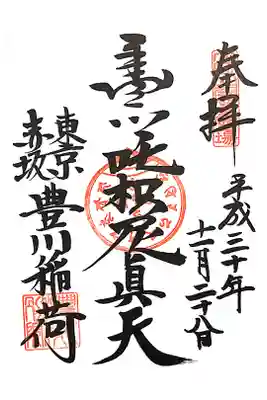 奉拝
平成三十年
十一月二十八日
豊川吒枳尼眞天
東京
赤坂
豊川稲荷